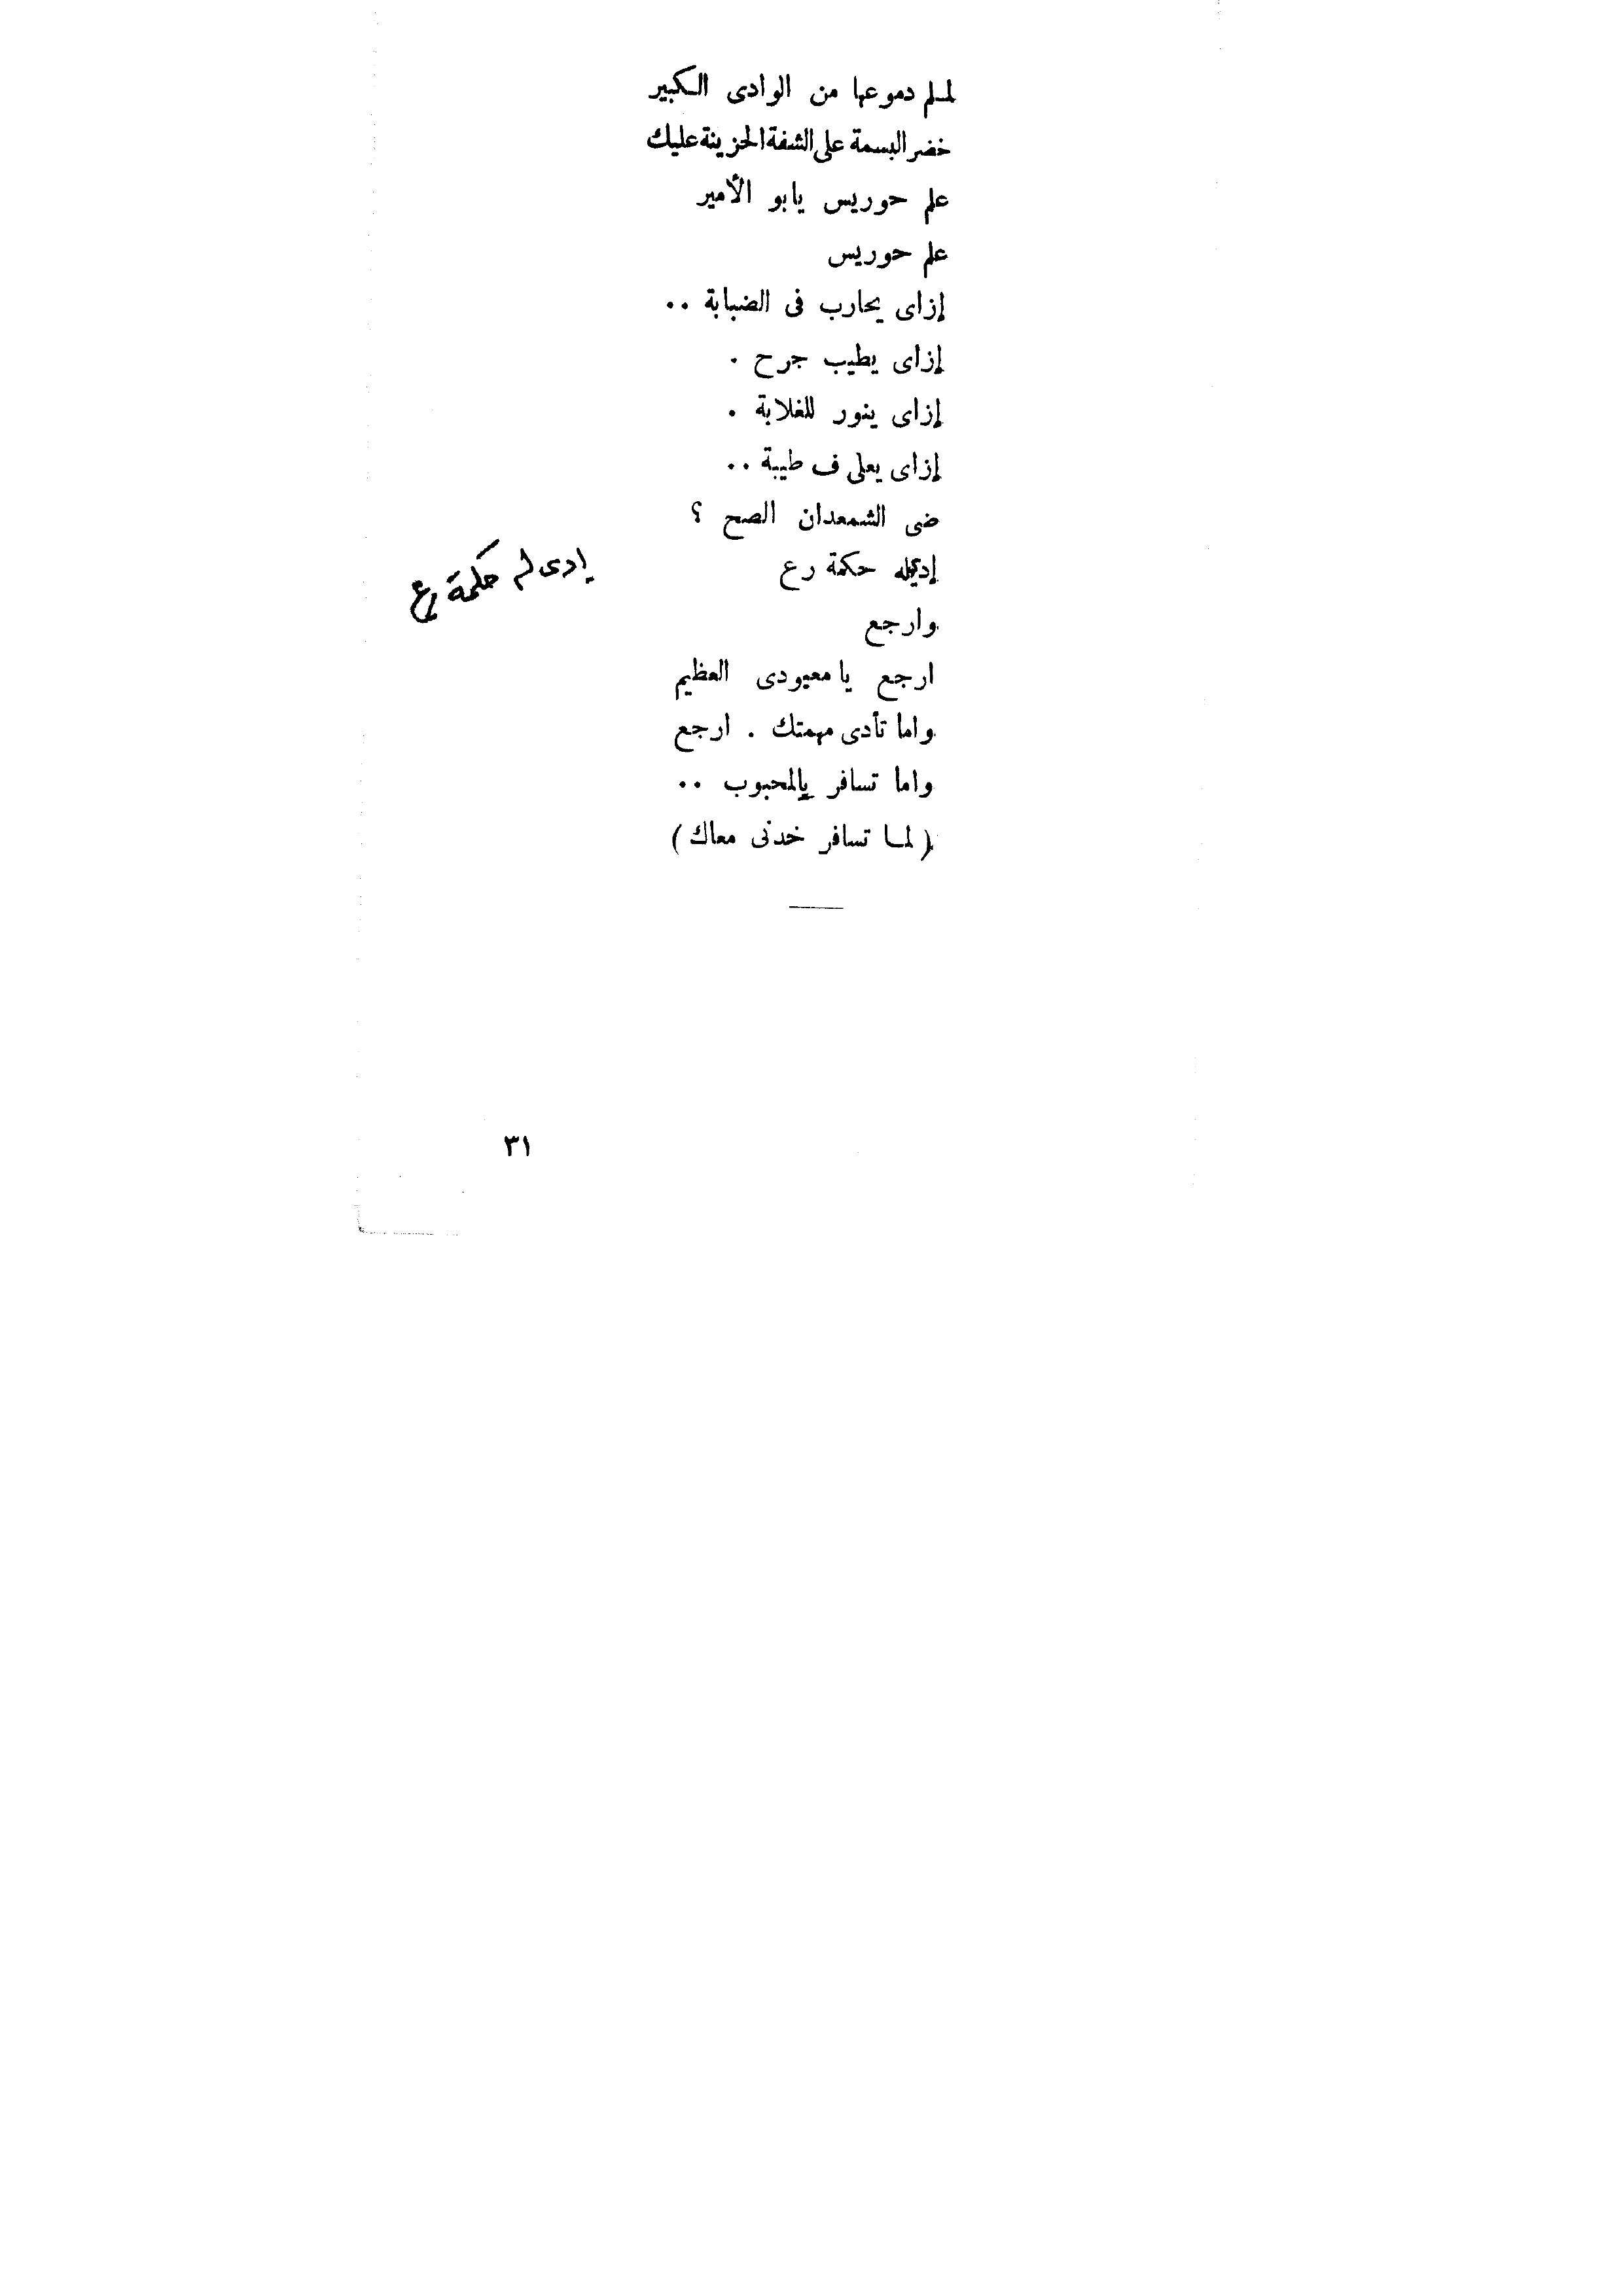 لملم دموعها من الوادى الكبير
خضر البسمة على الشفة الحزينة عليك
علم حوريس يابو الأمير
علم حوريس
إزاى يحارب فى الضبابة ..
إزاى يطيب جرح .
إزاى ينور للغلابة .
إزاى يعلى ف طيبة ..
ضى الشمعدان الصح ؟
حكمة رع
إدى له حكمة رع
وارجع
ارجع يا معبودى العظيم
واما تأدى مهمتك . ارجع
واما تسافر يالمحبوب ..
( لما تسافر خدنى معاك )
٣١